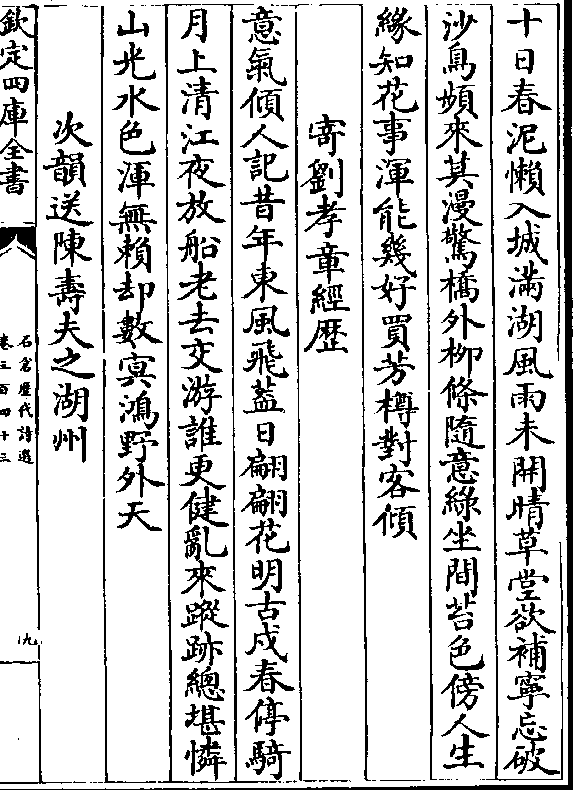 十日春泥懶入城滿湖風雨未開晴草堂欲補寧忘破
沙鳥頻來其漫驚橋外柳條隨意綠坐間苔色傍人生
緣知花事渾能幾好買芳樽對客傾
寄劉孝章經歴
意氣傾人記昔年東風飛蓋日翩翩花明古戍春停騎
月上清江夜放船老去交游誰更健亂來蹤跡總堪憐
山光水色渾無賴却數㝠鴻野外天
次韻送陳壽夫之湖州
欽定四庫全書
石倉歴代詩選
卷三百四十三
九